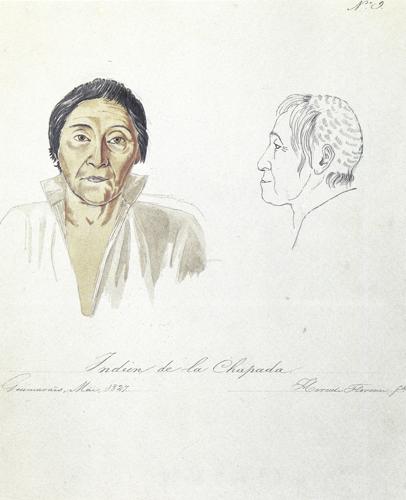 N.º 9.
Indien de la Chapada
Guimaraës, Mai, 1827. Hercule Florence f.t